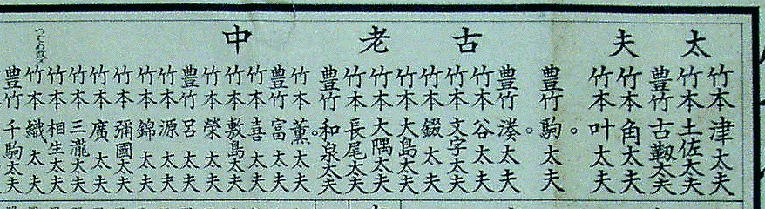 太夫 古老中
竹本津太夫
竹本土佐太夫
豊竹古靱太夫
竹本角太夫
竹本叶太夫
豊竹駒太夫
豊竹湊太夫
竹本谷太夫
竹本文字太夫
竹本錣太夫
竹本大島太夫
竹本大隅太夫
竹本長尾太夫
豊竹和泉太夫
竹本薫太夫
豊竹富太夫
竹本喜太夫
竹本敷島太夫
竹本榮太夫
豊竹呂太夫
竹本源太夫
竹本錦太夫
竹本彌國太夫
竹本廣太夫
竹本三瀧太夫
竹本相生太夫
竹本織太夫
豊竹千駒太夫